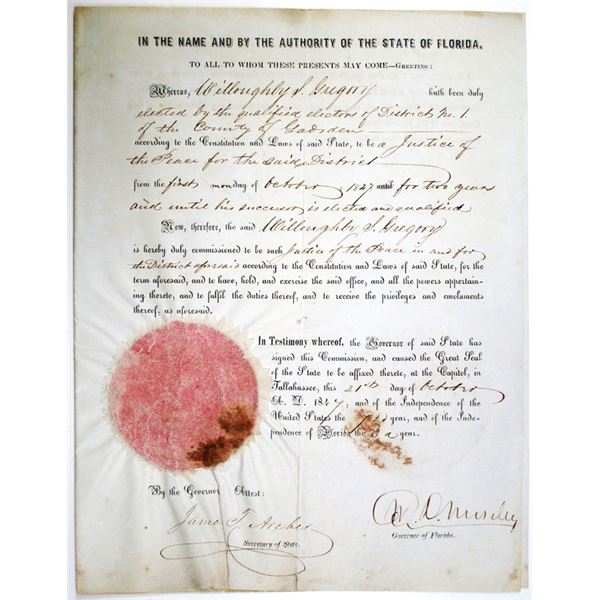 IN THE NAME AND BY THE AUTHORITY OF THE STATE OF FLORIDA,
TO ALL TO WHOM THESE PRESENTS MAY COME—GREETING:
Whereas, Willoughby S. Gregory hath been duly
elected by the qualified electors of District No. 1
of the County of Gadsden
according to the Constitution and Laws of said State, to be a Justice of
the Peace for the said District
from the first monday of October 1847 until for two years
and until his successor is elected and qualified
Now, therefore, the said Willoughby S. Gregory
is hereby duly commissioned to be such Justice of the Peace in and for
the District aforesaid according to the Constitution and Laws of said State, for the
term aforesaid, and to have, hold, and exercise the said office, and all the powers appertain-
ing thereto, and to fulfil the duties thereof, and to receive the privileges and emoluments
thereof, as aforesaid.
In Testimony whereof, the Governor of said State has
signed this Commission, and caused the Great Seal
of the State to be affixed thereto, at the Capitol, in
Tallahassee, this 21st day of October
A. D. 1847, and of the Independence of the
United States the year, and of the Inde-
pendence of Florida the 3d year.
By the Governor Attest:
James T. Archer
Secretary of State.
W. D. Moseley
Governor of Florida.